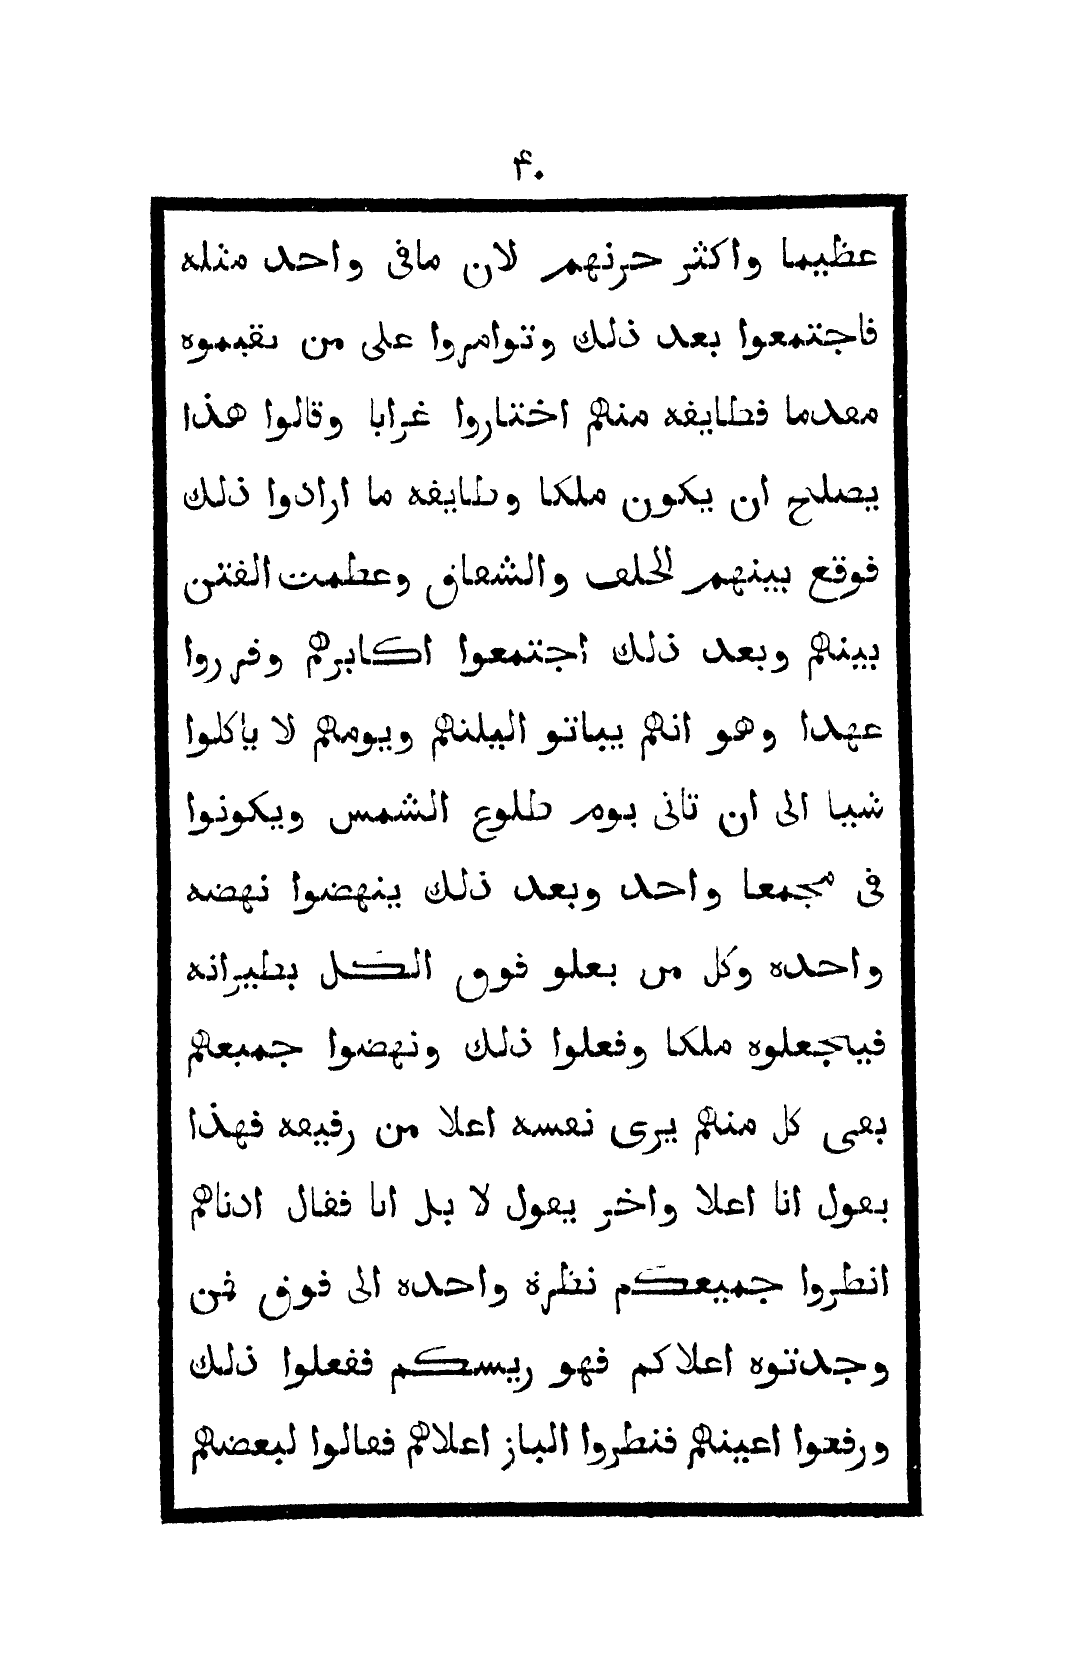 ۴۰
عظيما واكثر حرنهم لان مافى واحد مثله
فاجتمعوا بعد ذلك وتوامروا على من نقيموه
مقدما فطايفه منهم اختاروا غرابا وقالوا هذا
يصلح ان يكون ملكا وطايفه ما ارادوا ذلك
فوقع بينهم الخلف والشقاق وعظمت الفتن
بينهم وبعد ذلك اجتمعوا اكابرهم وقرروا
عهدا وهو انهم يباتو اليلتهم ويومهم لا ياكلوا
شيا الى ان تانى يوم طلوع الشمس ويكونوا
فى مجمعا واحد وبعد ذلك ينهضوا نهضه
واحده وكل من يعلو فوق الكل بطيرانه
فيجعلوه ملكا وفعلوا ذلك ونهضوا جميعهم
بقى كل منهم يرى نفسه اعلا من رفيقه فهذا
يقول انا اعلا واخر يقول لا بل انا فقال ادناهم
انظروا جميعكم نظرة واحده الى فوق فمن
وجدتوه اعلاكم فهو ريسكم ففعلوا ذلك
ورفعوا اعينهم فنظروا الباز اعلاهم فقالوا لبعضهم